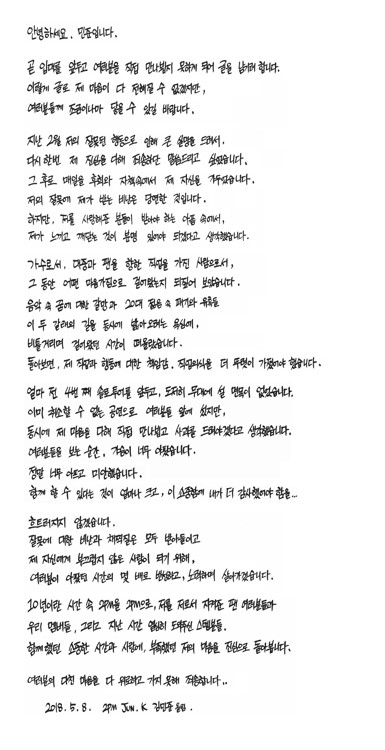 안녕하세요. 민준입니다.
곧 입대를 앞두고 여러분을 직접 만나뵙지 못하게 되어 글을 남기려 합니다.
이렇게 글로 제 마음이 다 전해질 수 없겠지만,
여러분들께 조금이나마 닿을 수 있길 바랍니다.
지난 2월 저의 잘못된 행동으로 인해 큰 실망을 드려서,
다시 한번 제 진심을 다해 죄송하단 말씀드리고 싶었습니다.
그 후로 매일을 후회와 자책속에서 제 자신을 가두었습니다.
저의 잘못에 제가 받는 비난은 당연한 것입니다.
하지만, 저를 사랑해준 분들이 받아야 하는 아픔 속에서,
제가 느끼고 깨닫는 것이 분명 있어야 되겠다고 생각했습니다.
가수로서, 대중과 팬을 향한 직업을 가진 사람으로서,
그 동안 어떤 마음가짐으로 걸어왔는지 되짚어 보았습니다.
음악 속 꿈에 대한 갈망과 20대 젊음 속 패기와 유혹들
이 두 갈래의 길을 동시에 밟아오려는 욕심에,
비틀거리며 걸어왔던 시간이 떠올랐습니다.
돌아보면, 제 직업과 행동에 대한 책임감, 직업의식을 더 뚜렷이 가졌어야 했습니다.
얼마 전 4번 째 솔로투어를 앞두고, 도저히 무대에 설 면목이 없었습니다.
이미 취소할 수 없는 공연으로 여러분들 앞에 섰지만,
동시에 제 마음을 다해 직접 만나뵙고 사과를 드려야겠다고 생각했습니다.
여러분들을 보는 순간, 가슴이 너무 아팠습니다.
정말 너무 아프고 미안했습니다.
함께 할 수 있다는 것이 얼마나 크고, 이 소중함에 내가 더 감사했어야 함을...
흐트러지지 않겠습니다.
잘못에 대한 비난과 채찍질은 모두 받아들이고
제 자신에게 부끄럽지 않은 사람이 되기 위해,
여러분이 아팠던 시간의 몇 배로 반성하고, 노력하며 살아가겠습니다.
10년이란 시간 속 2PM을 2PM으로, 저를 저로서 지켜준 팬 여러분들과
우리 멤버들, 그리고 지난 시간 열심히 도와주신 스탭분들.
함께했던 소중한 시간과 사랑에, 부족했던 저의 마음을 진심으로 돌아봅니다.
여러분의 다친 마음을 다 위로하고 가지 못해 죄송합니다..
2018. 5. 8. 2PM Jun. K 김민준 올림.